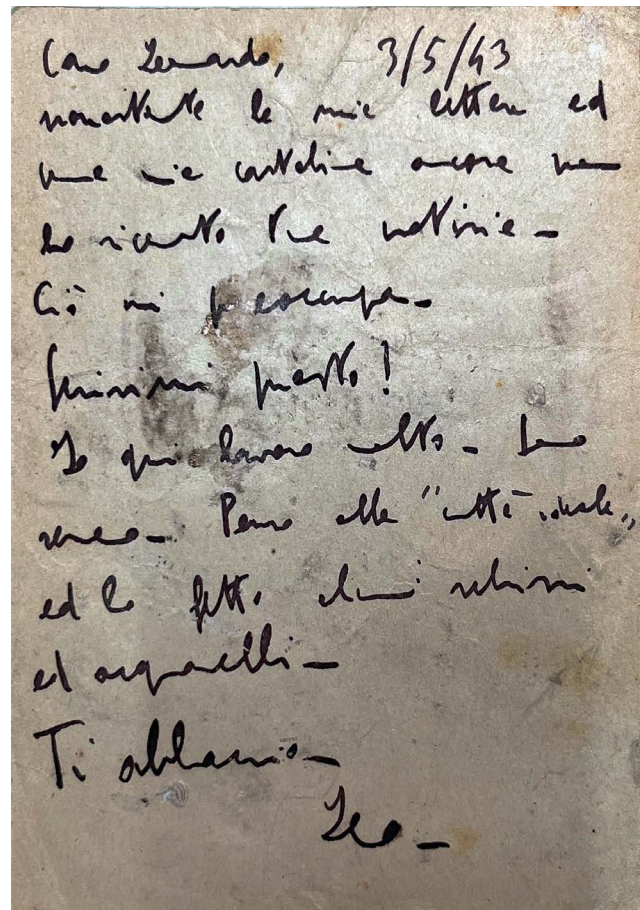 Caro Leonardo, 3/5/43
nonostante le mie lettere ed
une mie cartoline ancora non
ho ricevuto tue notizie -
Ciò mi preoccupa -
Scrivimi presto!
Io qui lavoro molto - Sono
sereno - Penso alla "città ideale"
ed ho fatto alcuni schizzi
ed acquarelli -
Ti abbraccio -
Leo -